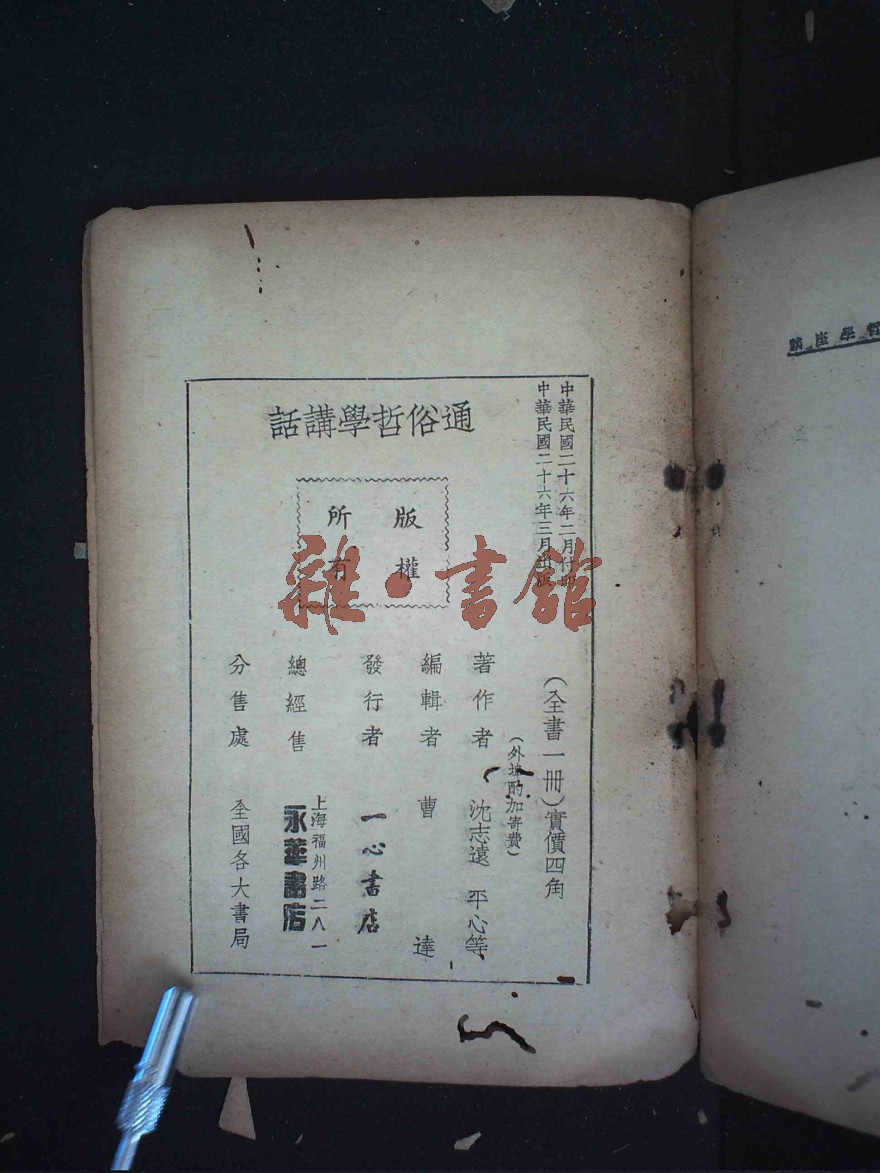 中華民國二十六年二月付印
中華民國二十六年三月出版
通俗哲學講話
版權
所有
(全書一冊)實價四角
(外埠酌加寄費)
著作者 沈志遠 平心等
編輯者 曹達
發行者 一心書店
總經售 上海福州路二八一
永華書店
分售處 全國各大書局
雜·書館
講座學哲